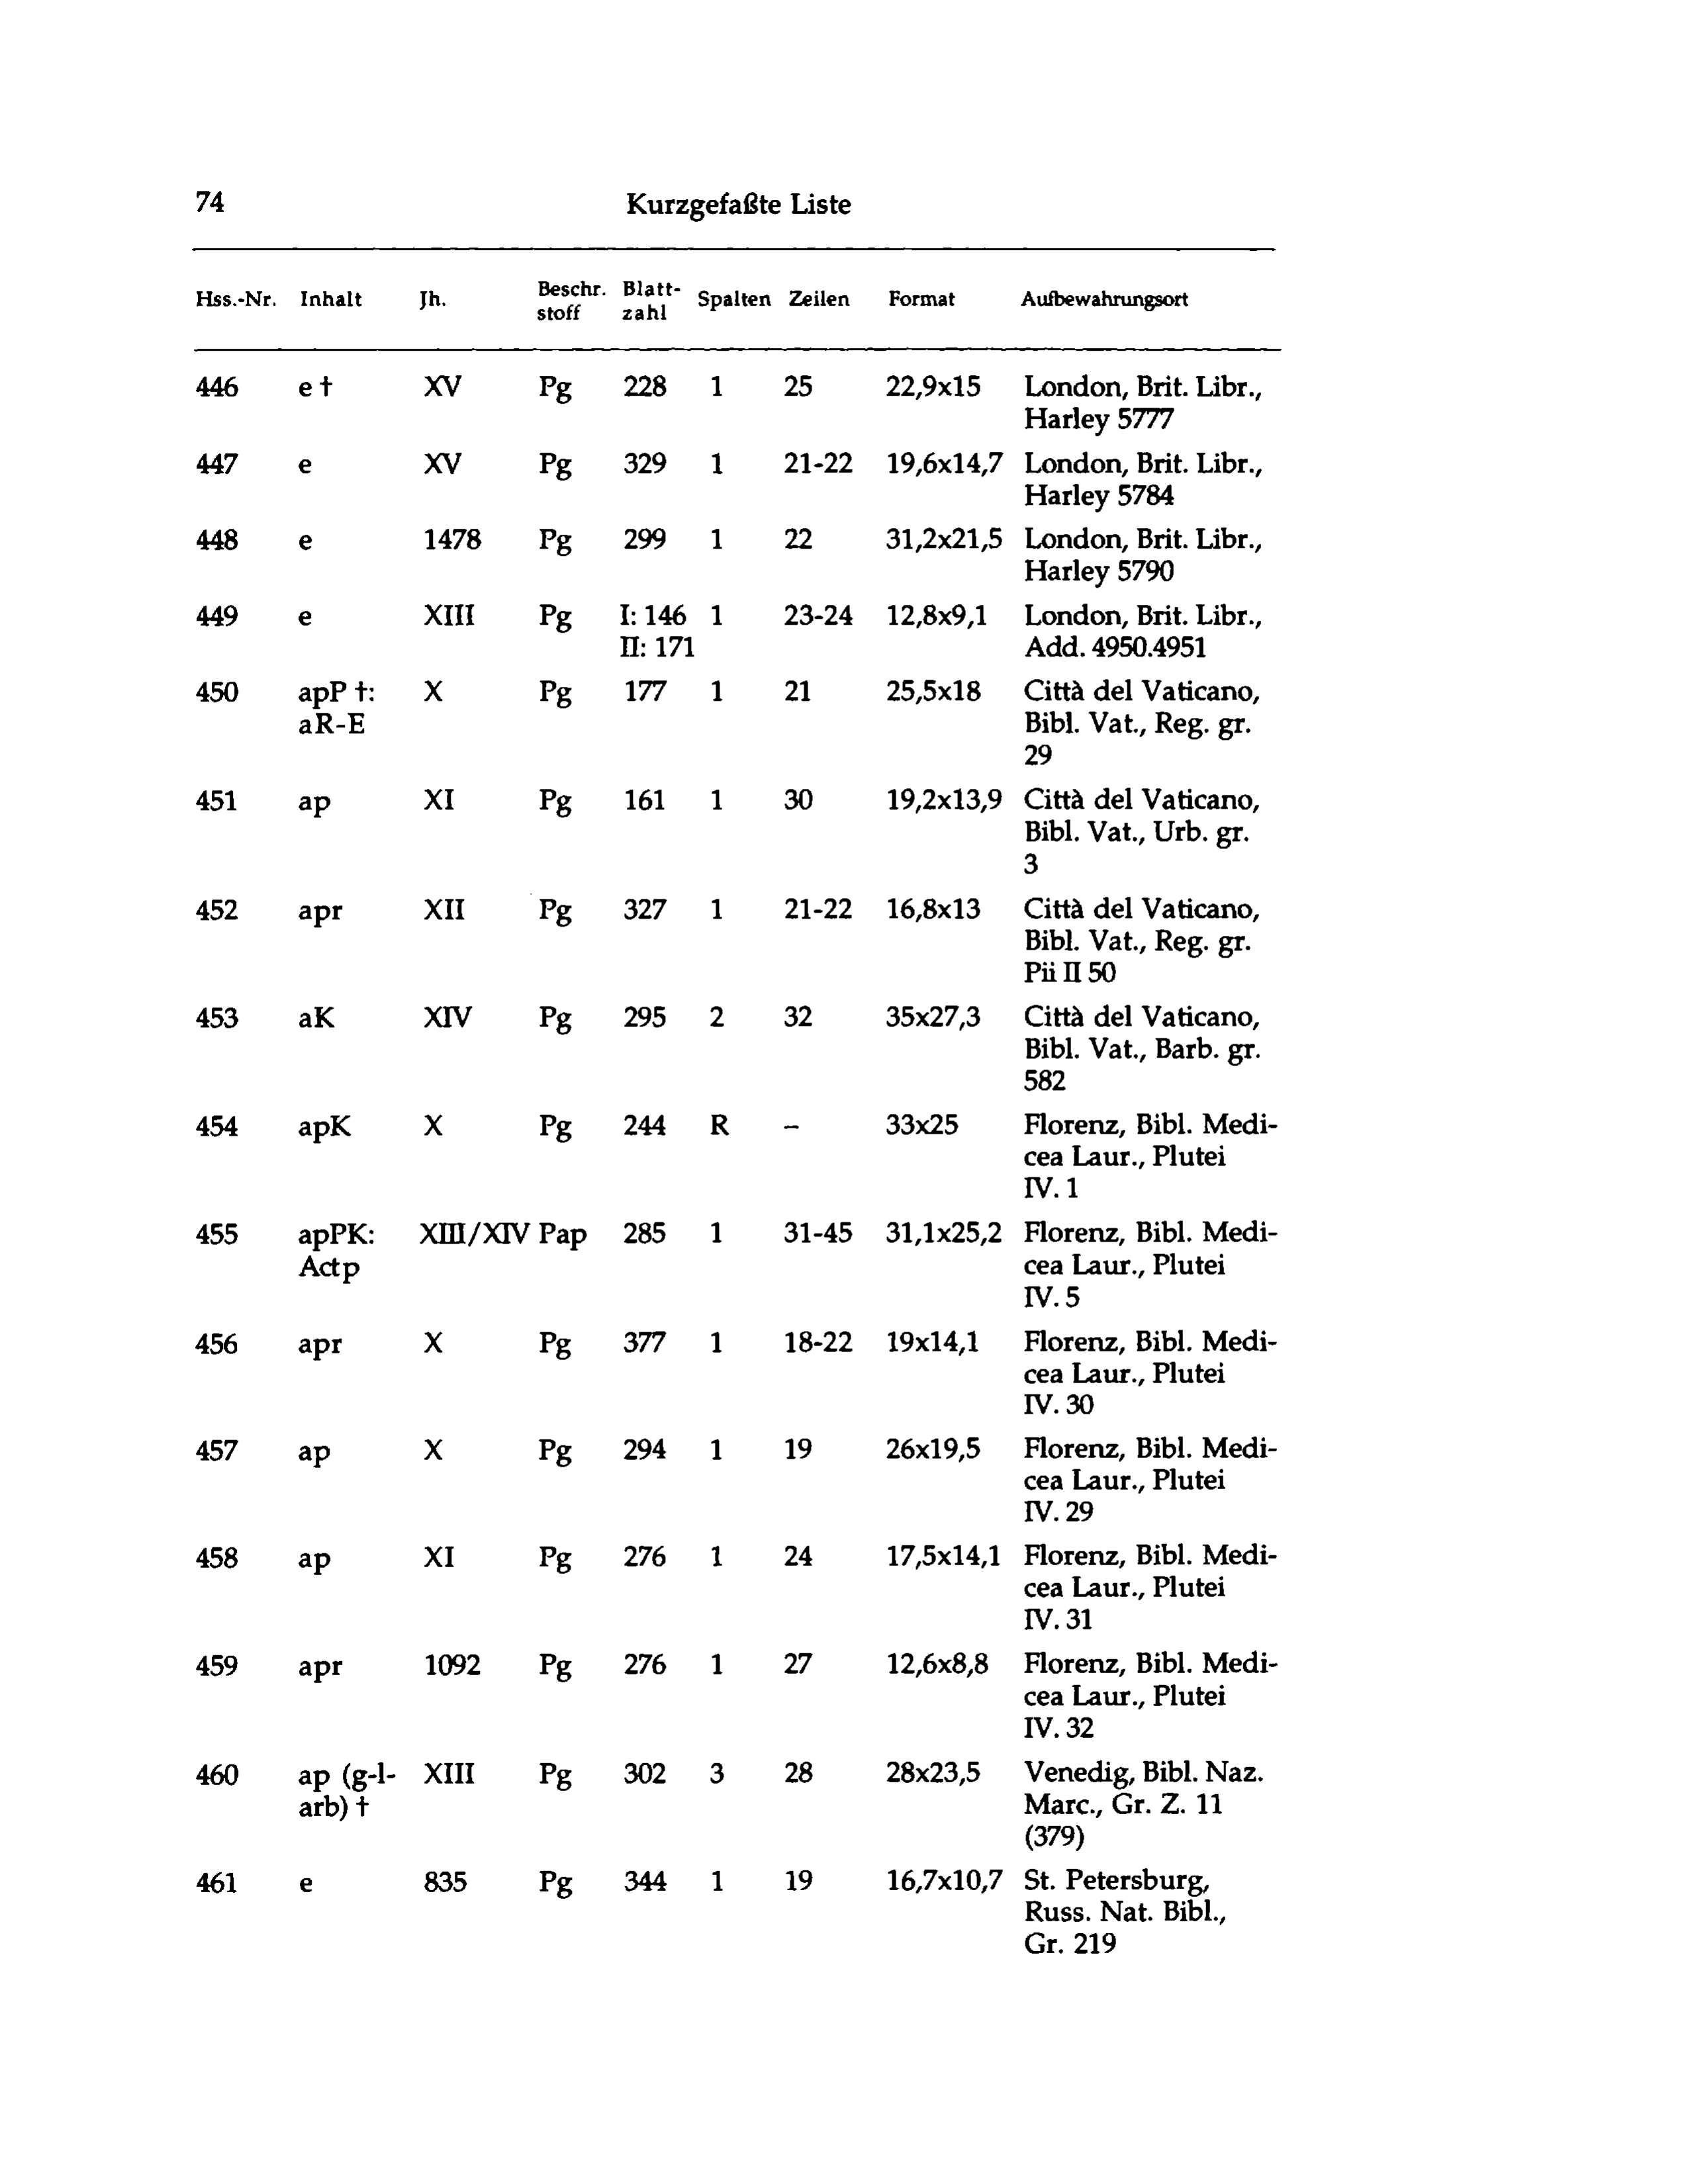 74 Kurzgefaßte Liste
Hss.-Nr. Inhalt Jh. Beschr. stoff Blatt- zahl Spalten Zeilen Format Aufbewahrungsort
446 e † XV Pg 228 1 25 22,9x15 London, Brit. Libr.,
Harley 5777
447 e XV Pg 329 1 21-22 19,6x14,7 London, Brit. Libr.,
Harley 5784
448 e 1478 Pg 299 1 22 31,2x21,5 London, Brit. Libr.,
Harley 5790
449 e XIII Pg I: 146 1 23-24 12,8x9,1 London, Brit. Libr.,
II: 171 Add. 4950.4951
450 apP †: X Pg 177 1 21 25,5x18 Città del Vaticano,
aR-E Bibl. Vat., Reg. gr.
29
451 ap XI Pg 161 1 30 19,2x13,9 Città del Vaticano,
Bibl. Vat., Urb. gr.
3
452 apr XII Pg 327 1 21-22 16,8x13 Città del Vaticano,
Bibl. Vat., Reg. gr.
Pii II 50
453 aK XIV Pg 295 2 32 35x27,3 Città del Vaticano,
Bibl. Vat., Barb. gr.
582
454 apK X Pg 244 R – 33x25 Florenz, Bibl. Medi-
cea Laur., Plutei
IV. 1
455 apPK: XIII/XIV Pap 285 1 31-45 31,1x25,2 Florenz, Bibl. Medi-
Act p cea Laur., Plutei
IV. 5
456 apr X Pg 377 1 18-22 19x14,1 Florenz, Bibl. Medi-
cea Laur., Plutei
IV. 30
457 ap X Pg 294 1 19 26x19,5 Florenz, Bibl. Medi-
cea Laur., Plutei
IV. 29
458 ap XI Pg 276 1 24 17,5x14,1 Florenz, Bibl. Medi-
cea Laur., Plutei
IV. 31
459 apr 1092 Pg 276 1 27 12,6x8,8 Florenz, Bibl. Medi-
cea Laur., Plutei
IV. 32
460 ap (g-l- XIII Pg 302 3 28 28x23,5 Venedig, Bibl. Naz.
arb) † Marc., Gr. Z. 11
(379)
461 e 835 Pg 344 1 19 16,7x10,7 St. Petersburg,
Russ. Nat. Bibl.,
Gr. 219